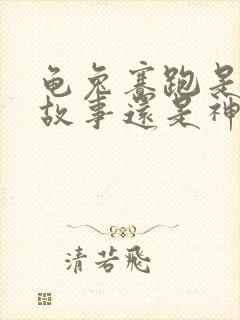 龟兔赛跑是
故事还是神
清若飛